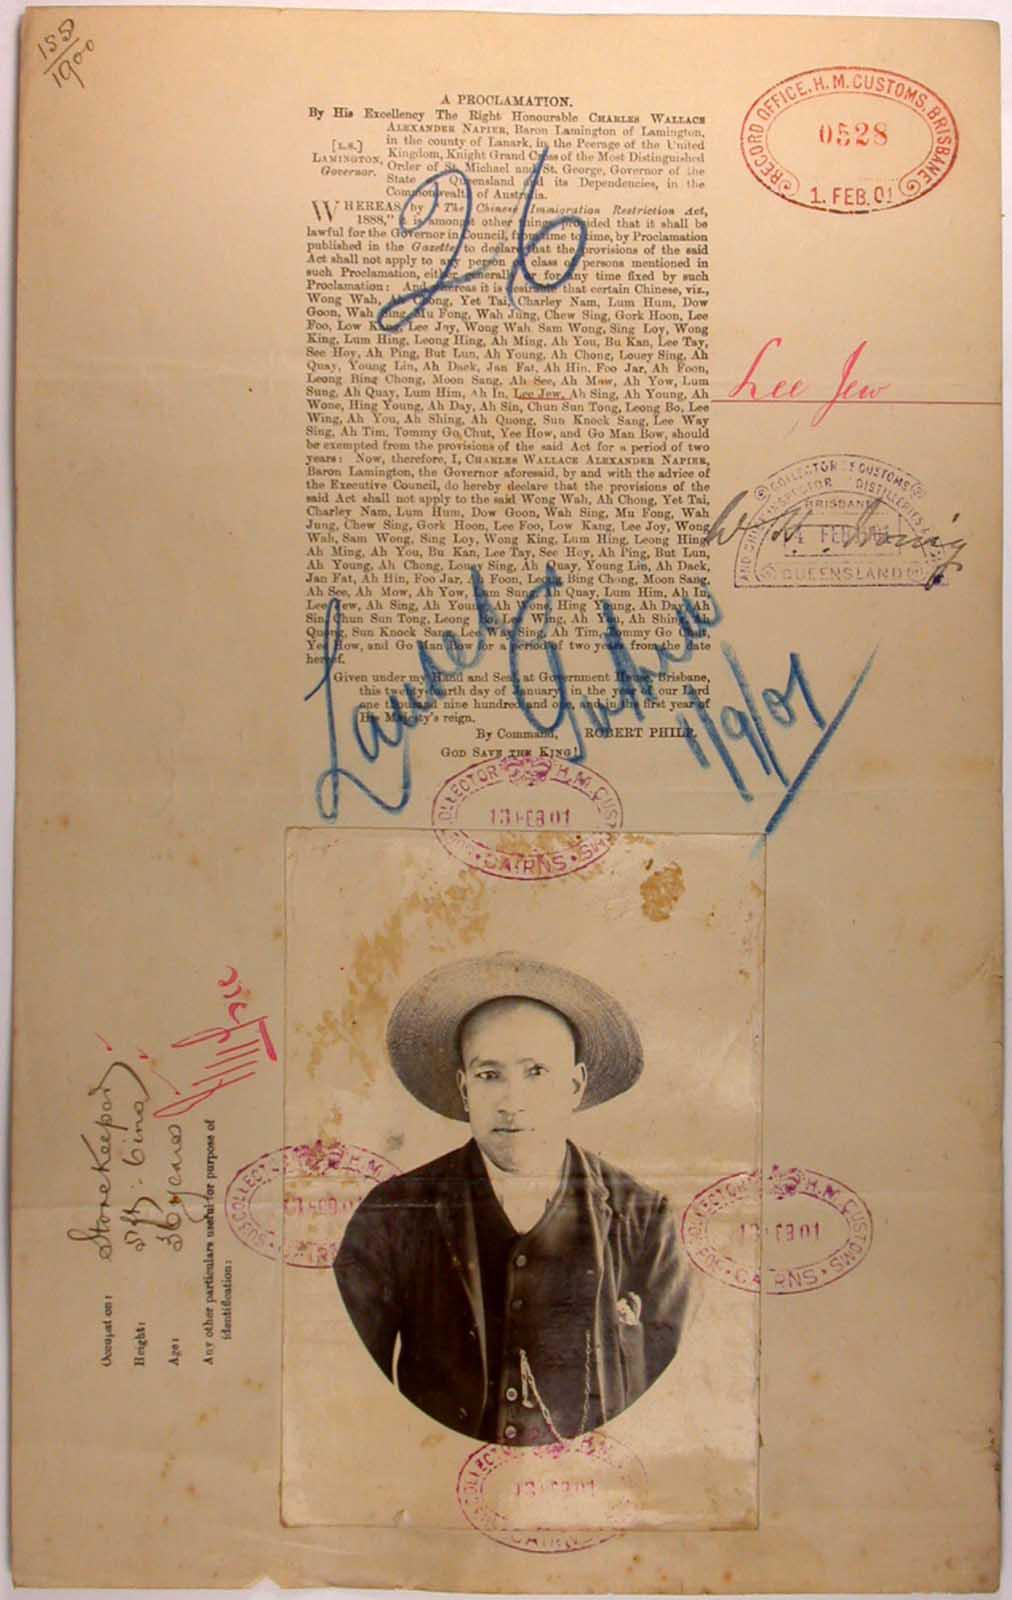 155
1900
A PROCLAMATION.
By His Excellency The Right Honourable CHARLES WALLACE
ALEXANDER NAPIER, Baron Lamington of Lamington,
in the county of Lanark, in the Peerage of the United
Kingdom, Knight Grand Cross of the Most Distinguished
Order of St. Michael and St. George, Governor of the
State of Queensland and its Dependencies, in the
Commonwealth of Australia.
[L.S.]
LAMINGTON,
Governor.
WHEREAS by "The Chinese Immigration Restriction Act,
1888," it is amongst other things provided that it shall be
lawful for the Governor in Council, from time to time, by Proclamation
published in the Gazette, to declare that the provisions of the said
Act shall not apply to any person or class of persons mentioned in
such Proclamation, either generally or for any time fixed by such
Proclamation: And whereas it is desirable that certain Chinese, viz.,
Wong Wah, Ah Chong, Yet Tai, Charley Nam, Lum Hum, Dow
Goon, Wah Sing, Mu Fong, Wah Jung, Chew Sing, Gork Hoon, Lee
Foo, Low Kang, Lee Joy, Wong Wah, Sam Wong, Sing Loy, Wong
King, Lum Hing, Leong Hing, Ah Ming, Ah You, Bu Kan, Lee Tay,
See Hoy, Ah Ping, But Lun, Ah Young, Ah Chong, Louey Sing, Ah
Quay, Young Lin, Ah Dack, Jan Fat, Ah Hin, Foo Jar, Ah Foon,
Leong Bing Chong, Moon Sang, Ah See, Ah Mow, Ah Yow, Lum
Sung, Ah Quay, Lum Him, Ah In, Lee Jew, Ah Sing, Ah Young, Ah
Wone, Hing Young, Ah Day, Ah Sin, Chun Sun Tong, Leong Bo, Lee
Wing, Ah You, Ah Shing, Ah Quong, Sun Knock Sang, Lee Way
Sing, Ah Tim, Tommy Go Chut, Yee How, and Go Man Bow, should
be exempted from the provisions of the said Act for a period of two
years: Now, therefore, I, CHARLES WALLACE ALEXANDER NAPIER,
Baron Lamington, the Governor aforesaid, by and with the advice of
the Executive Council, do hereby declare that the provisions of the
said Act shall not apply to the said Wong Wah, Ah Chong, Yet Tai,
Charley Nam, Lum Hum, Dow Goon, Wah Sing, Mu Fong, Wah
Jung, Chew Sing, Gork Hoon, Lee Foo, Low Kang, Lee Joy, Wong
Wah, Sam Wong, Sing Loy, Wong King, Lum Hing, Leong Hing,
Ah Ming, Ah You, Bu Kan, Lee Tay, See Hoy, Ah Ping, But Lun,
Ah Young, Ah Chong, Louey Sing, Ah Quay, Young Lin, Ah Dack,
Jan Fat, Ah Hin, Foo Jar, Ah Foon, Leong Bing Chong, Moon Sang,
Ah See, Ah Mow, Ah Yow, Lum Sung, Ah Quay, Lum Him, Ah In,
Lee Jew, Ah Sing, Ah Young, Ah Wone, Hing Young, Ah Day, Ah
Sin, Chun Sun Tong, Leong Bo, Lee Wing, Ah You, Ah Shing, Ah
Quong, Sun Knock Sang, Lee Way Sing, Ah Tim, Tommy Go Chut,
Yee How, and Go Man Bow for a period of two years from the date
hereof.
Given under my Hand and Seal, at Government House, Brisbane,
this twenty-fourth day of January, in the year of our Lord
one thousand nine hundred and one, and in the first year of
His Majesty's reign.
By Command, ROBERT PHILP.
GOD SAVE THE KING!
26
RECORD OFFICE, H. M. CUSTOMS, BRISBANE
0528
1. FEB. 01
Lee Jew
COLLECTOR OF CUSTOMS
AND CHIEF INSPECTOR DISTILLERIES
BRISBANE
QUEENSLAND
1/9/01
COLLECTOR H.M. CUSTOMS
13 FEB 01
CAIRNS
COLLECTOR H.M.
13 FEB 01
COLLECTOR H.M. CUSTOMS
13 FEB 01
CAIRNS
COLLECTOR H.M.
13 FEB 01
CAIRNS
Occupation: Storekeeper
Height: 5 ft: 6 ins
Age: 36 years
Any other particulars useful for purpose of
identification: